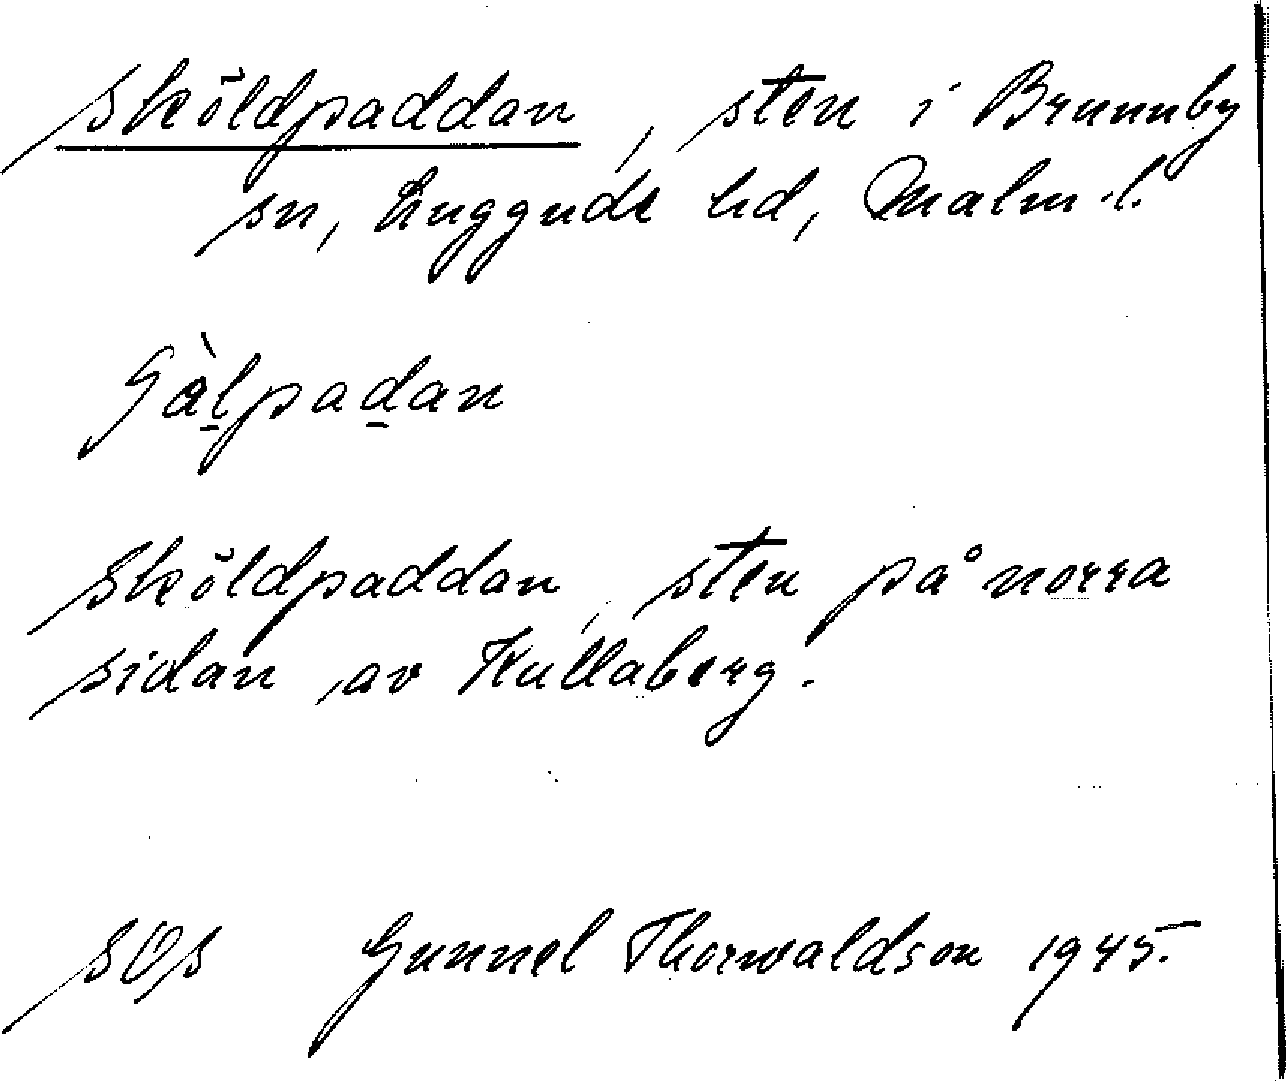 Sköldpaddan, sten i Brunnby
sn, Luggude hd, Malm.l.
Sköldpaddan, sten på norra
sidan av Kullaberg.
Gunnel Thorwaldson 1945.